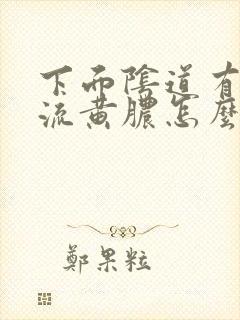 下面陰道有
流黄膿怎麼
鄭果粒